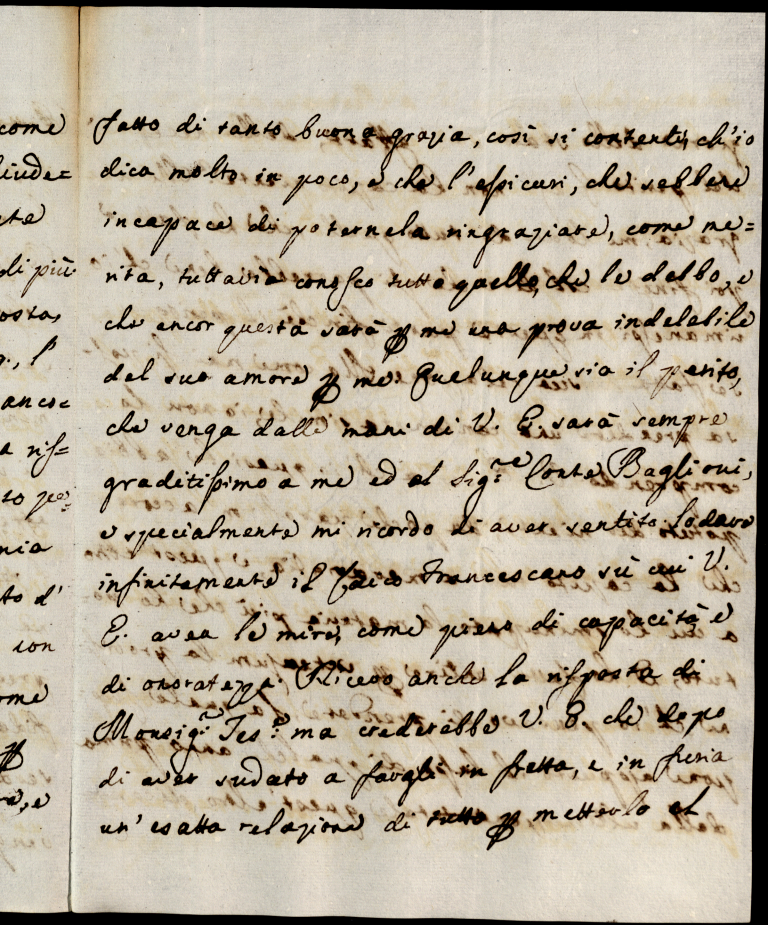 fatto di tanto buona grazia, così si contenti, ch'io
dica molto in poco, e che l'assicuri, che sebbene
incapace di poternela ringraziare, come me=
rita, tuttavia conosco tutto quello, che le debbo, e
che ancor questa sarà ꝑ me una prova indelebile
del suo amore ꝑ me. Qualunque sia il perito,
che venga dalle mani di V. E. sarà sempre
graditissimo a me ed al Sig.re Conte Baglioni,
e specialmente mi ricordo di aver sentito lodare
infinitamente il Laico Francescano sù cui V.
E. avea le mire, come pieno di capacità e
di onoratezza. Ricevo anche la risposta di
Monsig.r Tes.e ma crederebbe V. E. che dopo
di aver sudato a fargli in fretta, e in furia
un' esatta relazione di tutto ꝑ metterlo al
come
iude=
te
di più
osta,
l'
anco=
a ris=
to pe=
nia
to d'
con
ome
ꝑ